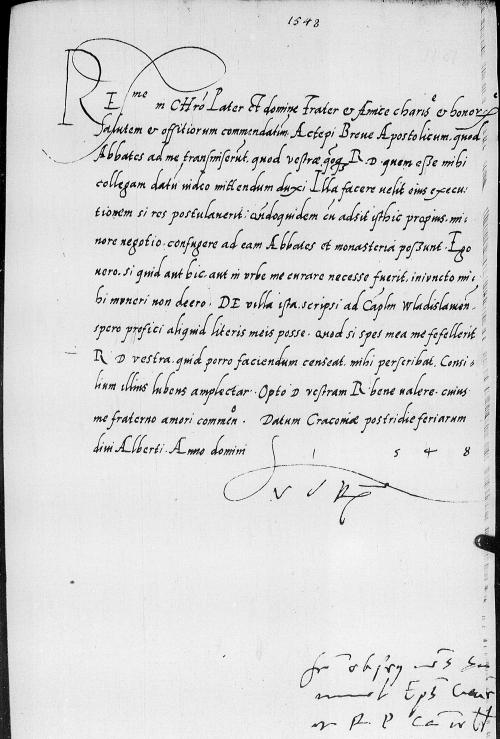 1548
R Eme in Chro Pater et domine Frater et Amice charise et honore
Salutem et offitiorum commendatim. Accepi Breve Apostolicum, quod
Abbates ad me transmiserunt, quod vestræ quoq R D quem esse mihi
collegam datu video mittendum duxi. Illa facere velit eius execu-
tionem si res postulaverit: qndoquidem cu adsit isthic propius, mi-
nore negotio confugere ad eam Abbates et monasteria possunt. Ego
vero, si quid aut hic, aut in urbe me curare necesse fuerit, iniuncto mi-
hi muneri non deero. DE villa ista, scripsi ad Caplm Wladislavien.
spero profici aliquid literis meis posse. quod si spes mea me fefellerit
R D vestra, quid porro faciendum censeat, mihi perscribat. Consi-
lium illius lubens amplectar. Opto D vestram R bene valere. cuius
me fraterno amori commeno. Datum Cracoviæ postridie feriarum
divi Alberti. Anno domini 1 5 4 8
V V R
Eps